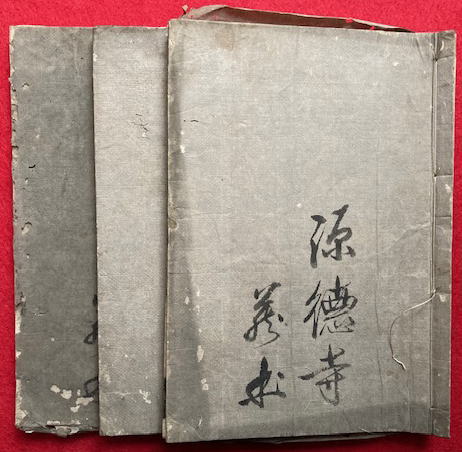 源德寺
蔵本